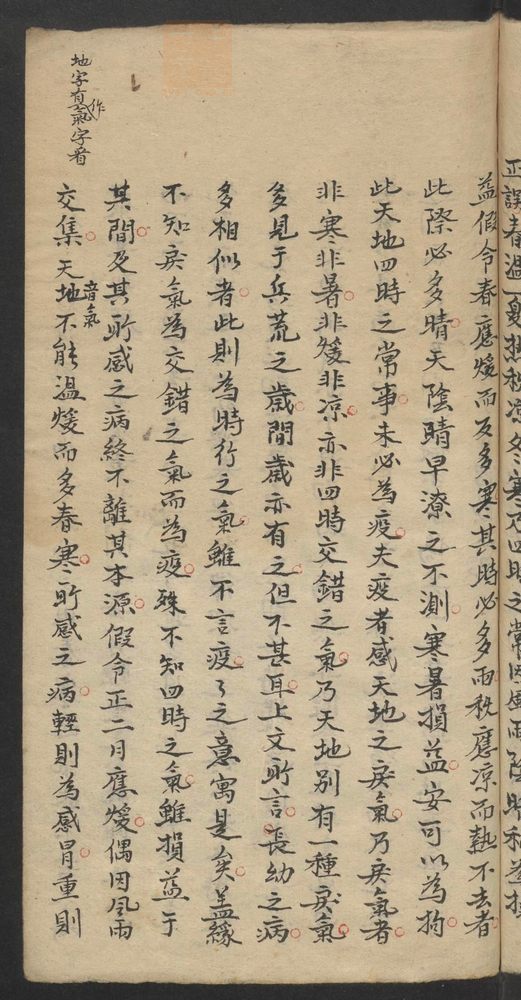 正誤春温夏熱秋凉冬寒乃四時之常因風雨陰晴稍為損
益假令春應煖而反多寒其時必多雨秋應凉而熱不去者
此際必多晴天陰晴旱潦之不測寒暑損益安可以為拘
此天地四時之常事未必為疫夫疫者感天地之戾氣乃戾氣者
非寒非暑非煖非凉亦非四時交錯之氣乃天地別有一種戾氣
多見于兵荒之歲間歲亦有之但不甚耳上文所言長幼之病
多相似者此則為時行之氣雖不言疫々之意寓是矣盖緣
不知戾氣為交錯之氣而為疫殊不知四時之氣雖損益于
其間及其所感之病終不離其本源假令正二月應煖偶因風雨
交集天地不能温煖而多春寒所感之病輕則為感冒重則
音氣
地字有作氣字者